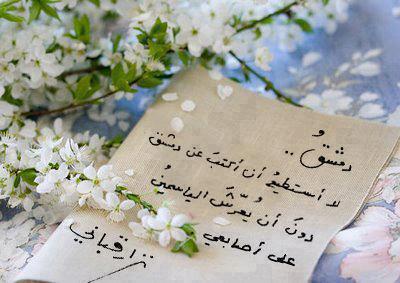 دمشقُ ..
لا أستطيعُ أن أكتبَ عن دمشق
دونَ أن يُعرّشَ الياسمينُ
على أصابعي
نزار قباني